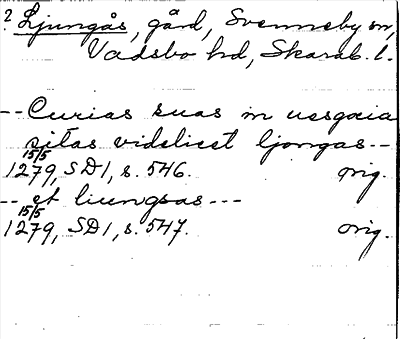 ? Ljungås, gård, Svenneby sn,
Vadsbo hd, Skarab. l.
-- Curias suas in uesgocia
sitas videlicet ljongas --
15/5
1279, SD1, s. 546. orig.
-- et liungsas ---
15/5
1279, SD1, s. 547. orig.